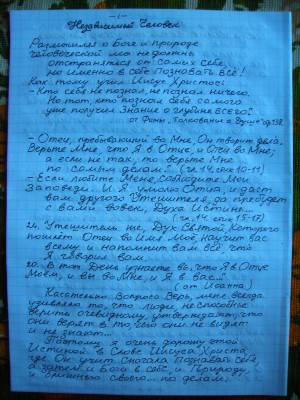 -1-
Независимый Человек
Размышляя о Боге и природе
человеческой мы не должны
отстраняться от самих себя,
но именно в себе познавать всё!
Как тому учил Иисус Христос:
- Кто себя не познал, не познал ничего.
Но тот, кто познал себя самого
уже получил знание о глубине всего.
от Фомы,
- Отец, пребывающий во Мне, Он творит дела,
Верьте Мне, что Я в Отце, и Отец во Мне;
а если не так, то верьте Мне
по самым делам. (гл. 14. стих 10-11)
- Если любите Меня, соблюдите Мои
Заповеди. И Я умолю Отца, и даст
вам другого Утешителя, да пребудет
с вами вовек, Духа Истины...
(гл. 14. стих 15-17)
Утешитель же, Дух Святой, Которого
пошлёт Отец во Имя Моё, научит вас
всему и напомнит вам всё, что
Я говорил вам.
20. В тот День узнаете вы, что Я в Отце
Моём, и вы во Мне, и Я в вас.
(от Иоанна)
Касательно вопроса Веры, меня всегда
удивляло то, что люди неспособные
верить очевидному, утверждают, что
они верят в то, чего они не видят
и не знают...
Поэтому я очень дорожу этой
Истиной в Слове Иисуса Христа,
где Он учит сначала Познавать себя,
а затем и Бога в себе, и Природу,
и ближнего своего... по делам.